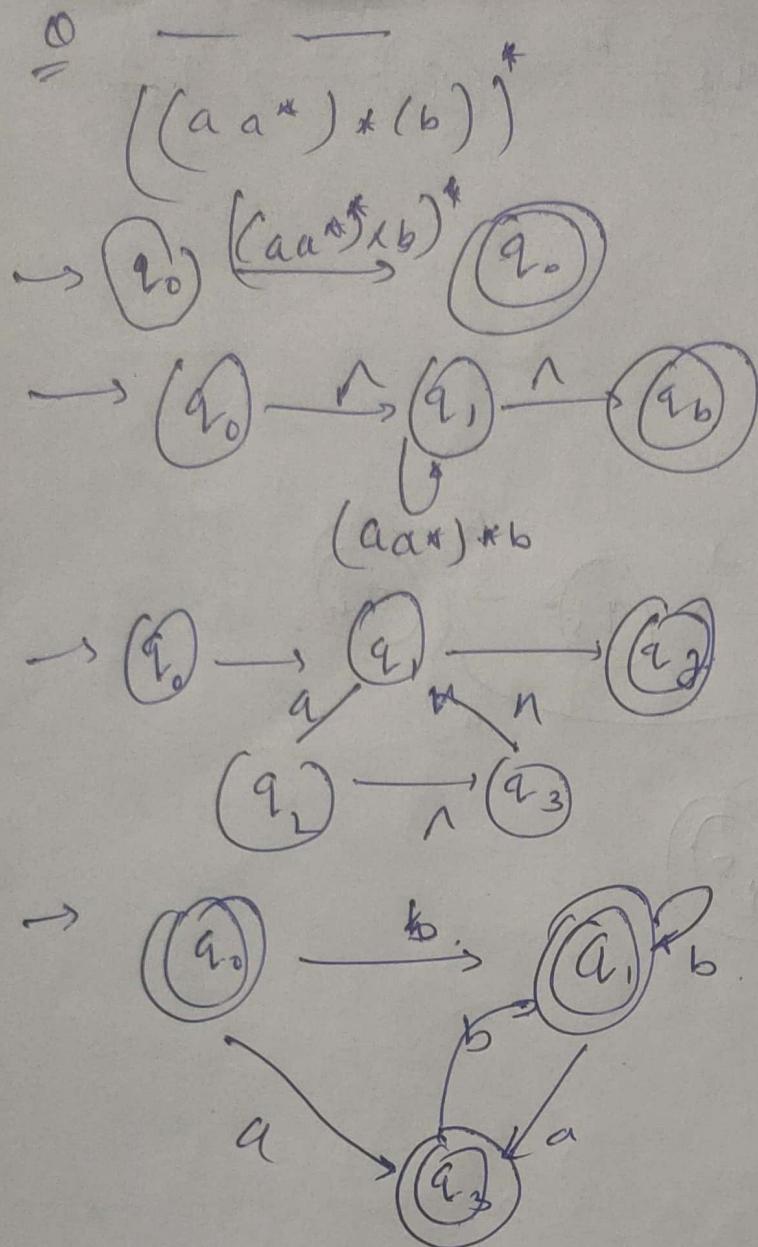 Q
((a a*) * (b))*
→ q₀ ((aa*)*b)* q₀
→ q₀ ∧ q₁ ∧ q_b
(aa*)*b
→ q₀ q₁
a ∧
q₂ ∧ q₃
→ q₀ b. q₁ b
b
a a
q₃